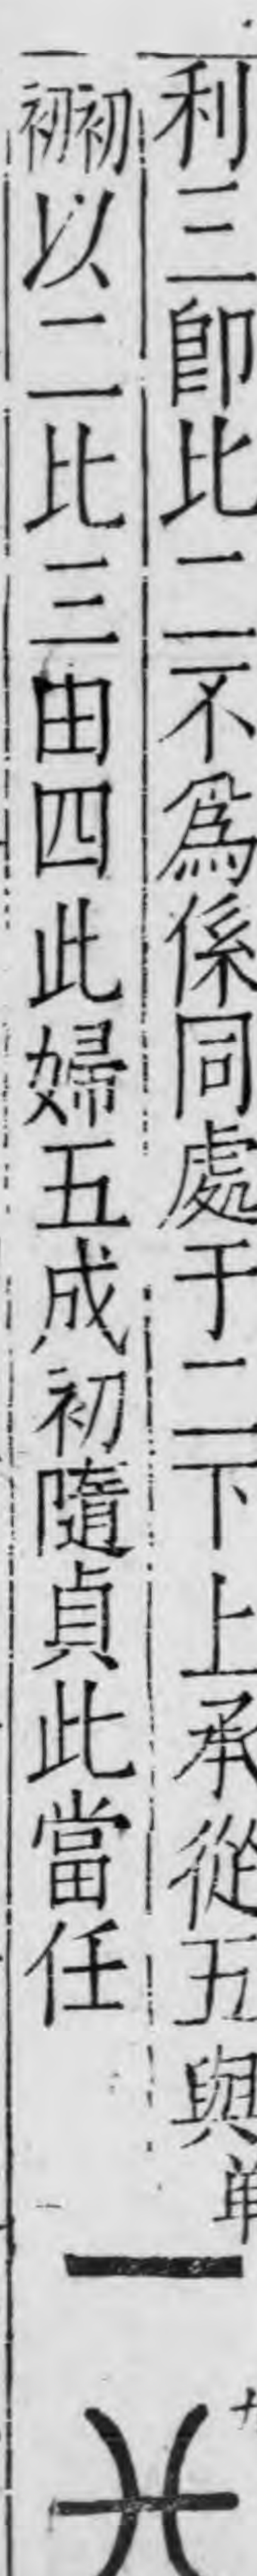 利三即比二不爲係同處于二下上承從五與
初初以二比三由四此婦五成初隨貞此當任